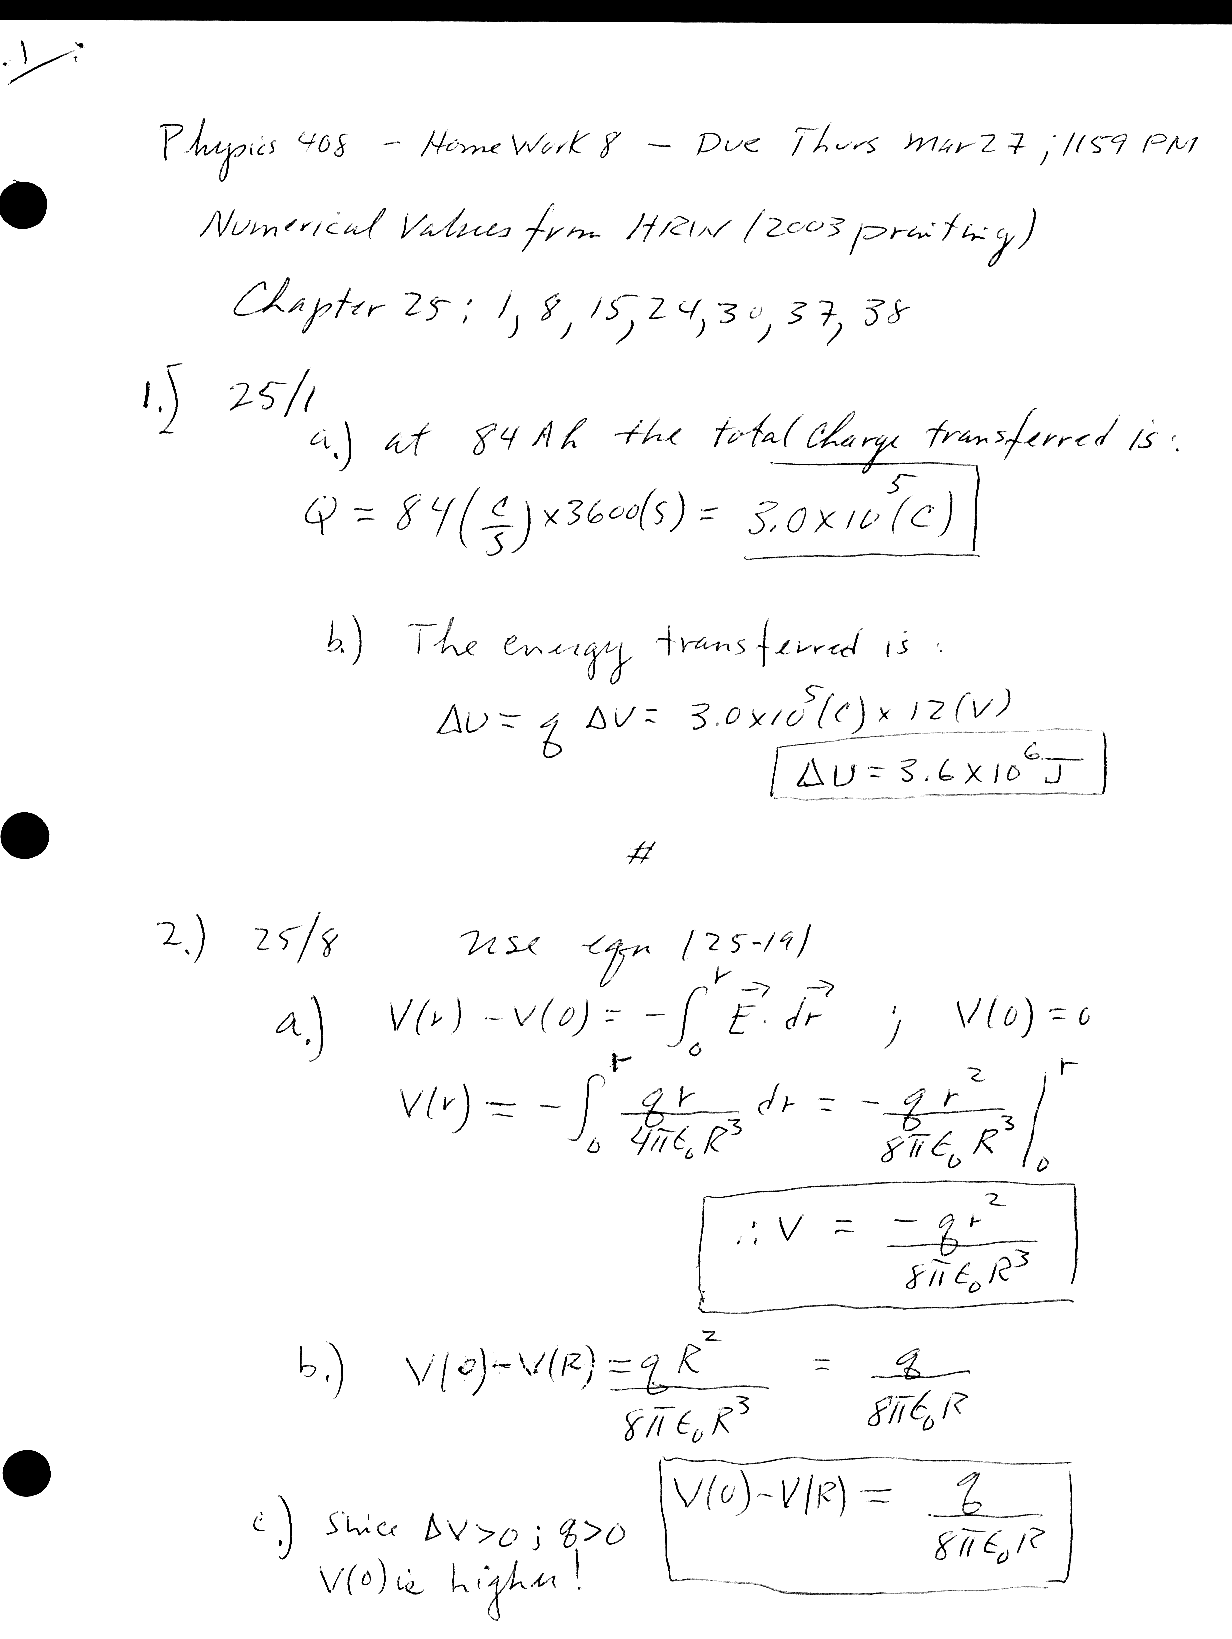 .1/:
Physics 408 - HomeWork 8 - Due Thurs Mar 27 ; 1159 PM
Numerical Values from HRW (2003 printing)
Chapter 25 : 1, 8, 15, 24, 30, 37, 38
1.) 25/1
a.) at 84 Ah the total Charge transferred is :
Q = 84 (C/s) × 3600(s) = 3.0×10⁵(C)
b.) The energy transferred is :
ΔU = q ΔV = 3.0×10⁵(C) × 12(V)
ΔU = 3.6×10⁶ J
#
2.) 25/8 Use eqn (25-19)
a.) V(r) - V(0) = - ∫₀ʳ E⃗ · dr⃗ ; V(0) = 0
V(r) = - ∫₀ʳ qr/4πε₀R³ dr = - qr²/8πε₀R³ |₀ʳ
∴ V = -qr²/8πε₀R³
b.) V(0) - V(R) = qR²/8πε₀R³ = q/8πε₀R
V(0) - V(R) = q/8πε₀R
c.) Since ΔV>0 ; q>0
V(0) is higher!